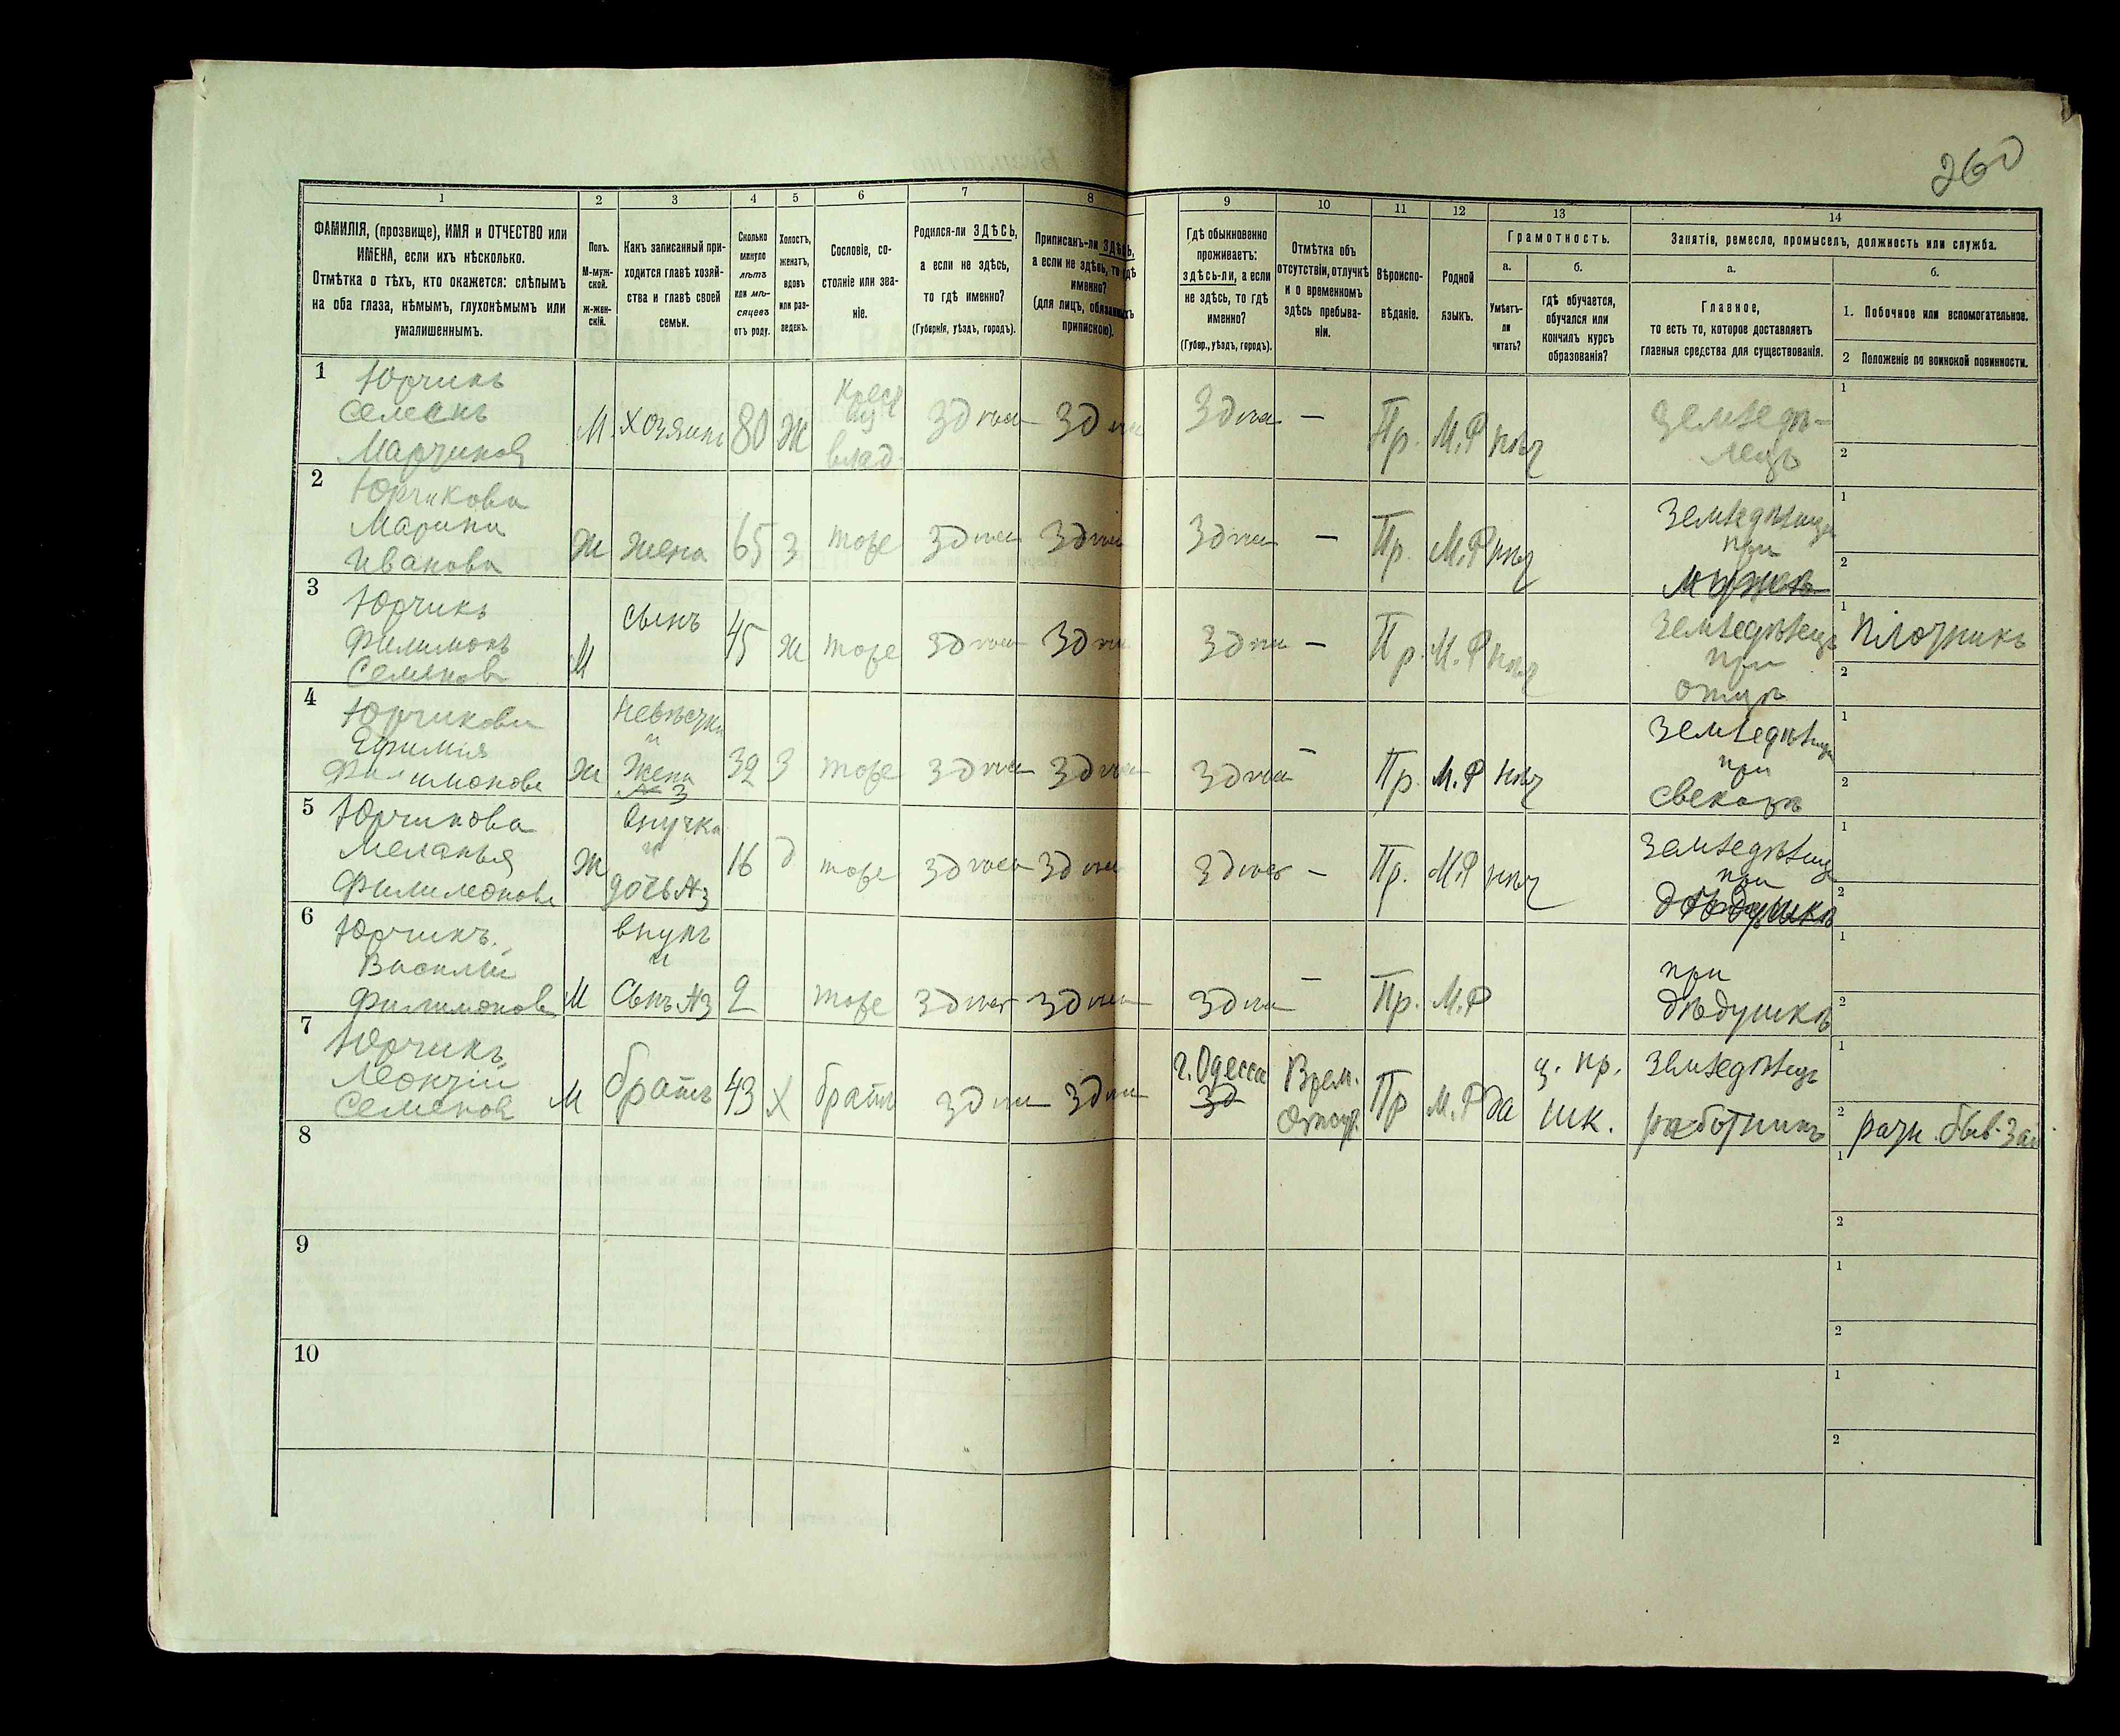 260
1 2 3 4 5 6 7 8 9 10 11 12 13 14
ФАМИЛІЯ, (прозвище), ИМЯ и ОТЧЕСТВО или
ИМЕНА, если ихъ нѣсколько.
Отмѣтка о тѣхъ, кто окажется: слѣпымъ
на оба глаза, нѣмымъ, глухонѣмымъ или
умалишеннымъ.
Полъ.
М-муж-
ской.
Ж-жен-
скій.
Какъ записанный при-
ходится главѣ хозяй-
ства и главѣ своей
семьи.
Сколько
минуло
лѣтъ
или мѣ-
сяцевъ
отъ роду.
Холостъ,
женатъ,
вдовъ
или раз-
веденъ.
Сословіе, со-
стояніе или зва-
ніе.
Родился-ли ЗДѢСЬ,
а если не здѣсь,
то гдѣ именно?
(Губернія, уѣздъ, городъ).
Приписанъ-ли ЗДѢСЬ,
а если не здѣсь, то гдѣ
именно?
(для лицъ, обязанныхъ
припискою).
Гдѣ обыкновенно
проживаетъ:
здѣсь-ли, а если
не здѣсь, то гдѣ
именно?
(Губер., уѣздъ, городъ).
Отмѣтка объ
отсутствіи, отлучкѣ
и о временномъ
здѣсь пребыва-
ніи.
Вѣроиспо-
вѣданіе.
Родной
языкъ.
Грамотность.
а.
Умѣетъ-
ли
читать?
б.
гдѣ обучается,
обучался или
кончилъ курсъ
образованія?
Занятіе, ремесло, промыселъ, должность или служба.
а.
Главное,
то есть то, которое доставляетъ
главныя средства для существованія.
б.
1. Побочное или вспомогательное.
2 Положеніе по воинской повинности.
1 Юрчикъ
Семенъ
М. хозяинъ 80 Ж
Крест
из
влад.
Здѣсь Здѣсь Здѣсь — Пр. М.Р нѣт
Земледѣ-
лецъ
1
2
2 Юрчикова
Марина
Иванова
Ж жена 65 З тоже Здѣсь Здѣсь Здѣсь — Пр. М.Р нѣт
при
мужѣ
1
2
3 Юрчикъ
Филимонъ
Семенов
М сынъ 45 Ж тоже Здѣсь Здѣсь Здѣсь — Пр. М.Р нѣт
Земледѣлецъ
при
отцѣ
1 плотникъ
2
4 Юрчикова
Ефимія
Филимонова
Ж
Невѣстка
и
Жена
№ 3
32 З тоже Здѣсь Здѣсь Здѣсь — Пр. М.Р нѣт
при
свекорѣ
1
2
5 Юрчикова
Меланья
Филимонова
Ж
Внучка
и
дочь №3
16 д тоже Здѣсь Здѣсь Здѣсь — Пр. М.Р нѣт
при
дѣдушкѣ
1
2
6 Юрчикъ
Василій
Филимонов
М
внукъ
и
Сынъ №3
2 тоже Здѣсь Здѣсь Здѣсь — Пр. М.Р
при
дѣдушкѣ
1
2
7 Юрчикъ
Леонтій
Семенов
М братъ 43 Х братъ Здѣсь Здѣсь
г. Одесса
Зд
Врем.
Отлуч.
Пр М.Р да
ц. пр.
шк.
Земледѣлецъ
работникъ
1
2 ратн. быв. зап
8
1
2
9
1
2
10
1
2